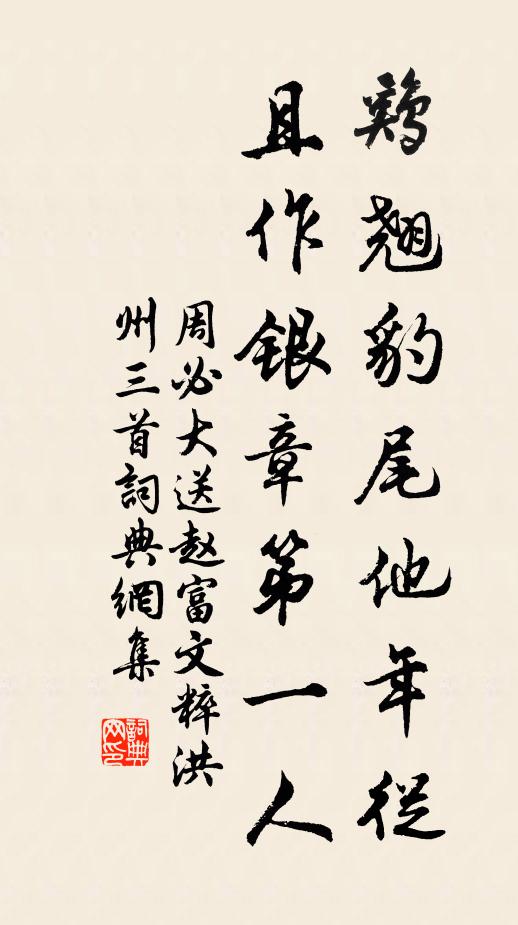 鷄翘豹尾他年從
且作銀章第一人
周必大送赵富文粹洪
州三首詞典網集
詞典网印